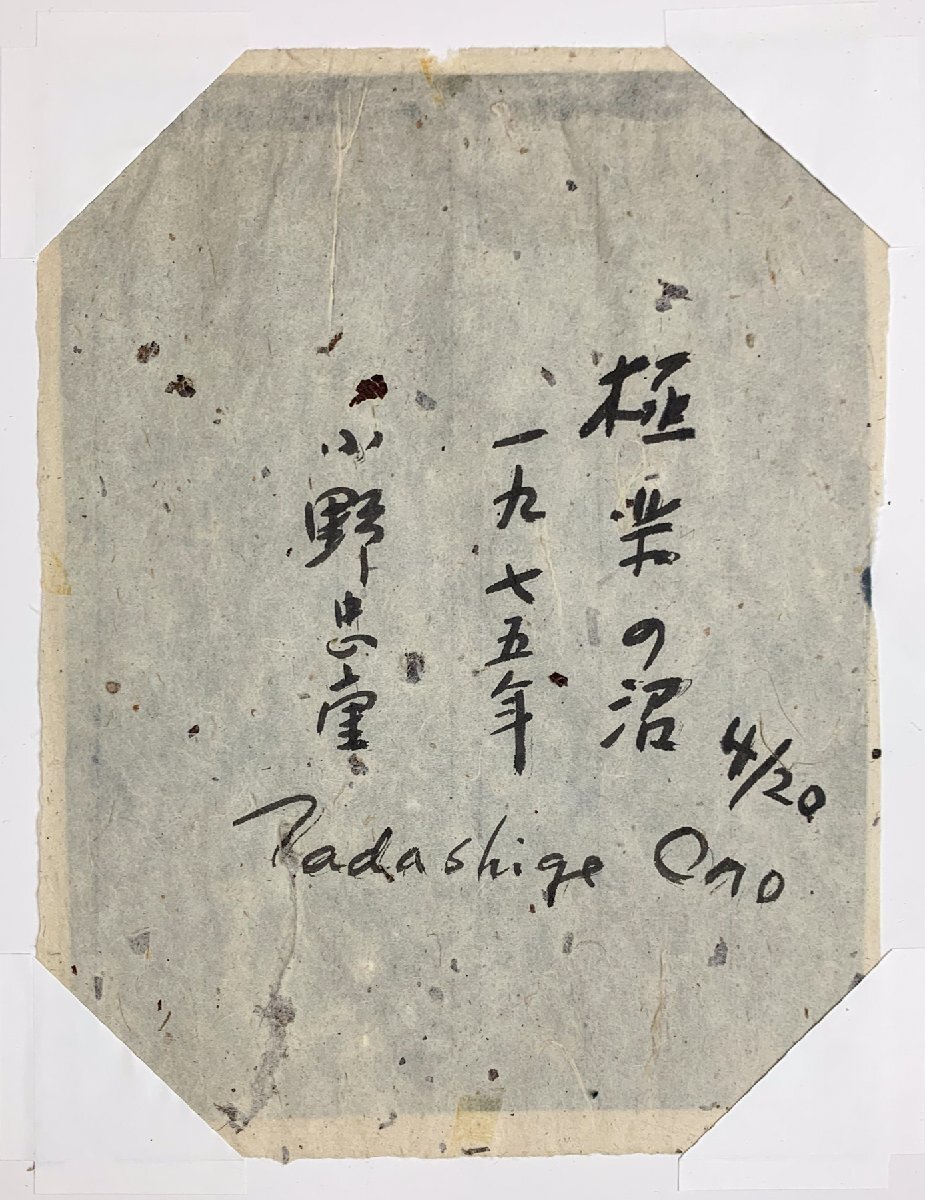 極楽の沼
一九七五年
小野忠重
4/20
Tadashige Ono